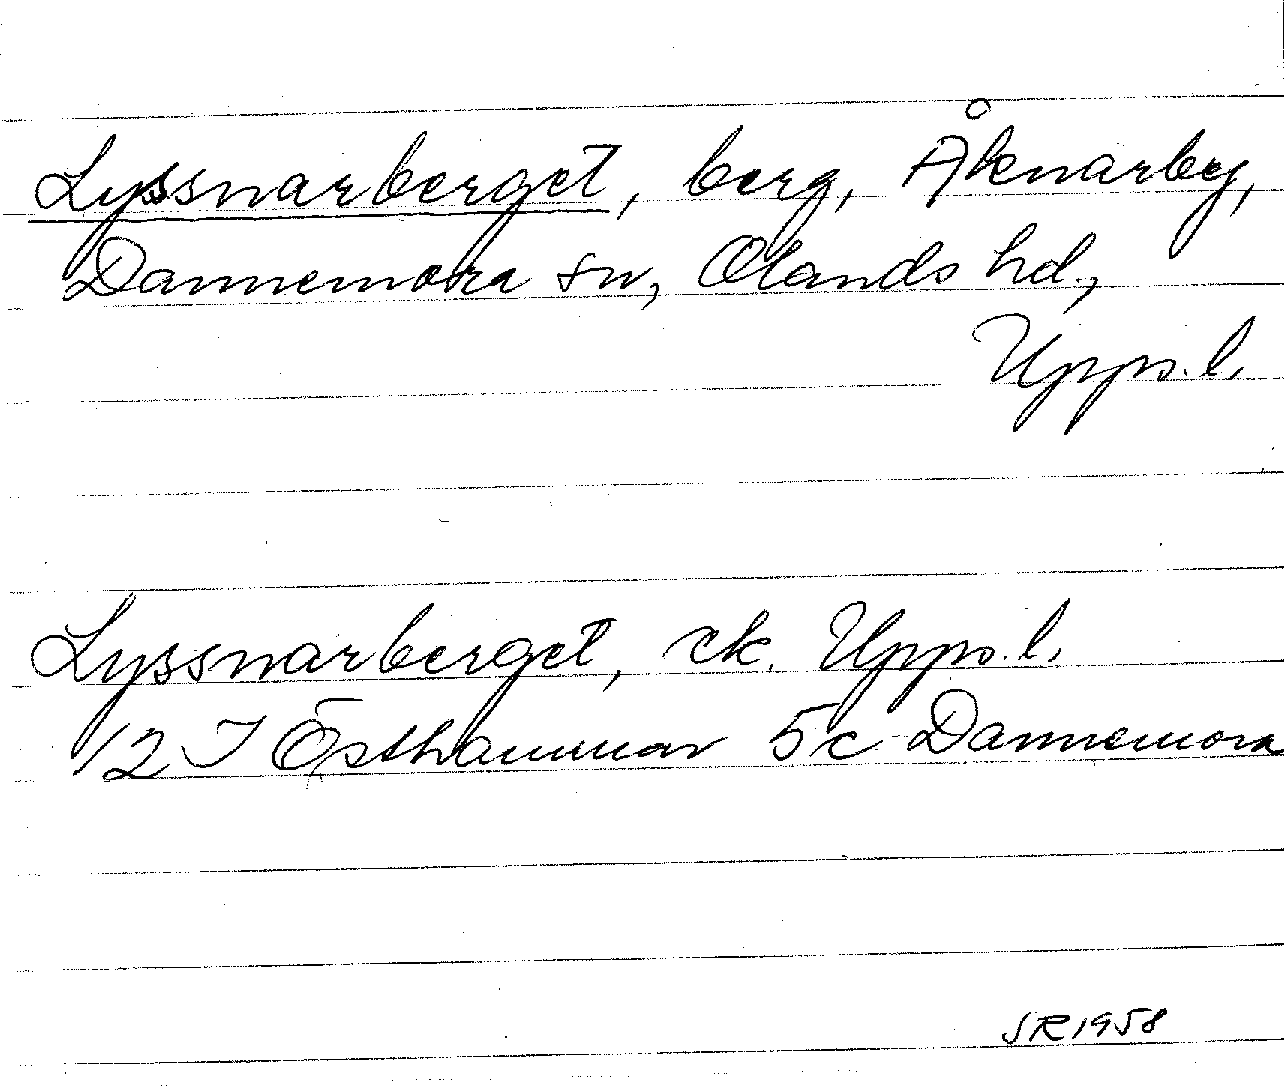 Lyssnarberget, berg, Åknarby,
Dannemora sn, Olands hd.,
Upps. l.
Lyssnarberget, ek. Upps. l.
12 I Östhammar 5c Dannemora
SR 1958